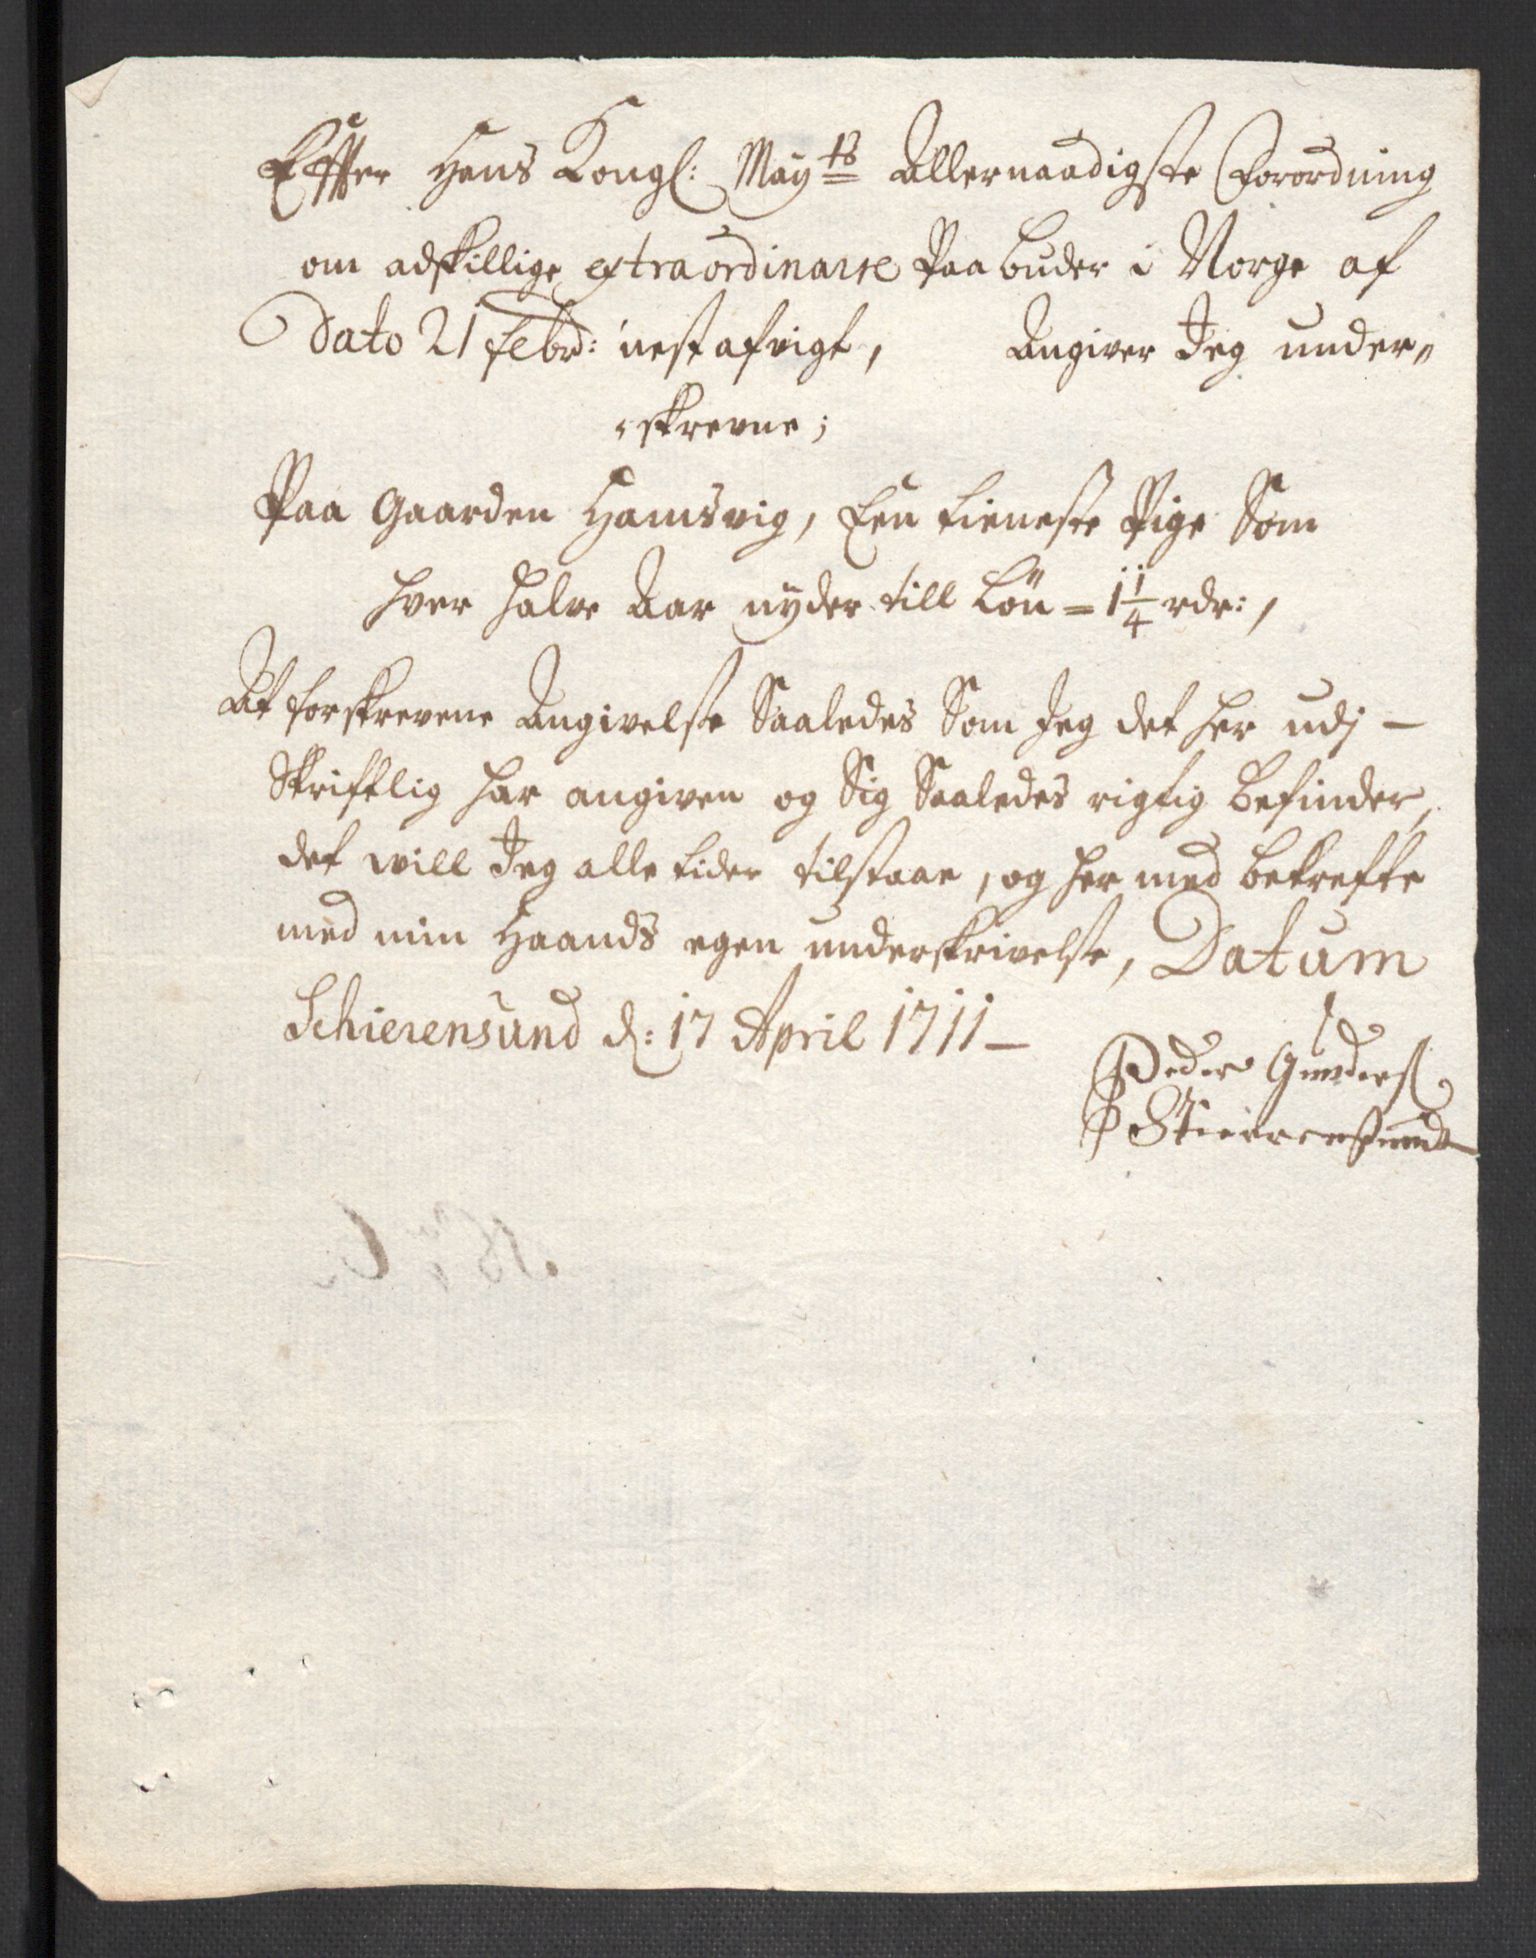 Effter Hans Kongl: May:ts Allernaadigste Forordning
om adskillige extraordinarse Paabuder i Norge af
Dato 21 febr: nest afvigt, Angiver Jeg under„
„skrevne;
Paa Gaarden Hamsvig, Een tieneste Pige Som
hver halve Aar nyder till Løn = 1 1/4 rdr:,
At forskrevene Angivelse Saaledes Som Jeg det her udj –
Skrifftlig har angiven og Sig Saaledes rigtig befinder,
det will Jeg alle tider tilstaae, og her med bekrefte
med min Haands egen underskrivelse, Datum
Schierensund d: 17 April 1711 –
Peder Gunders
Skierrensund